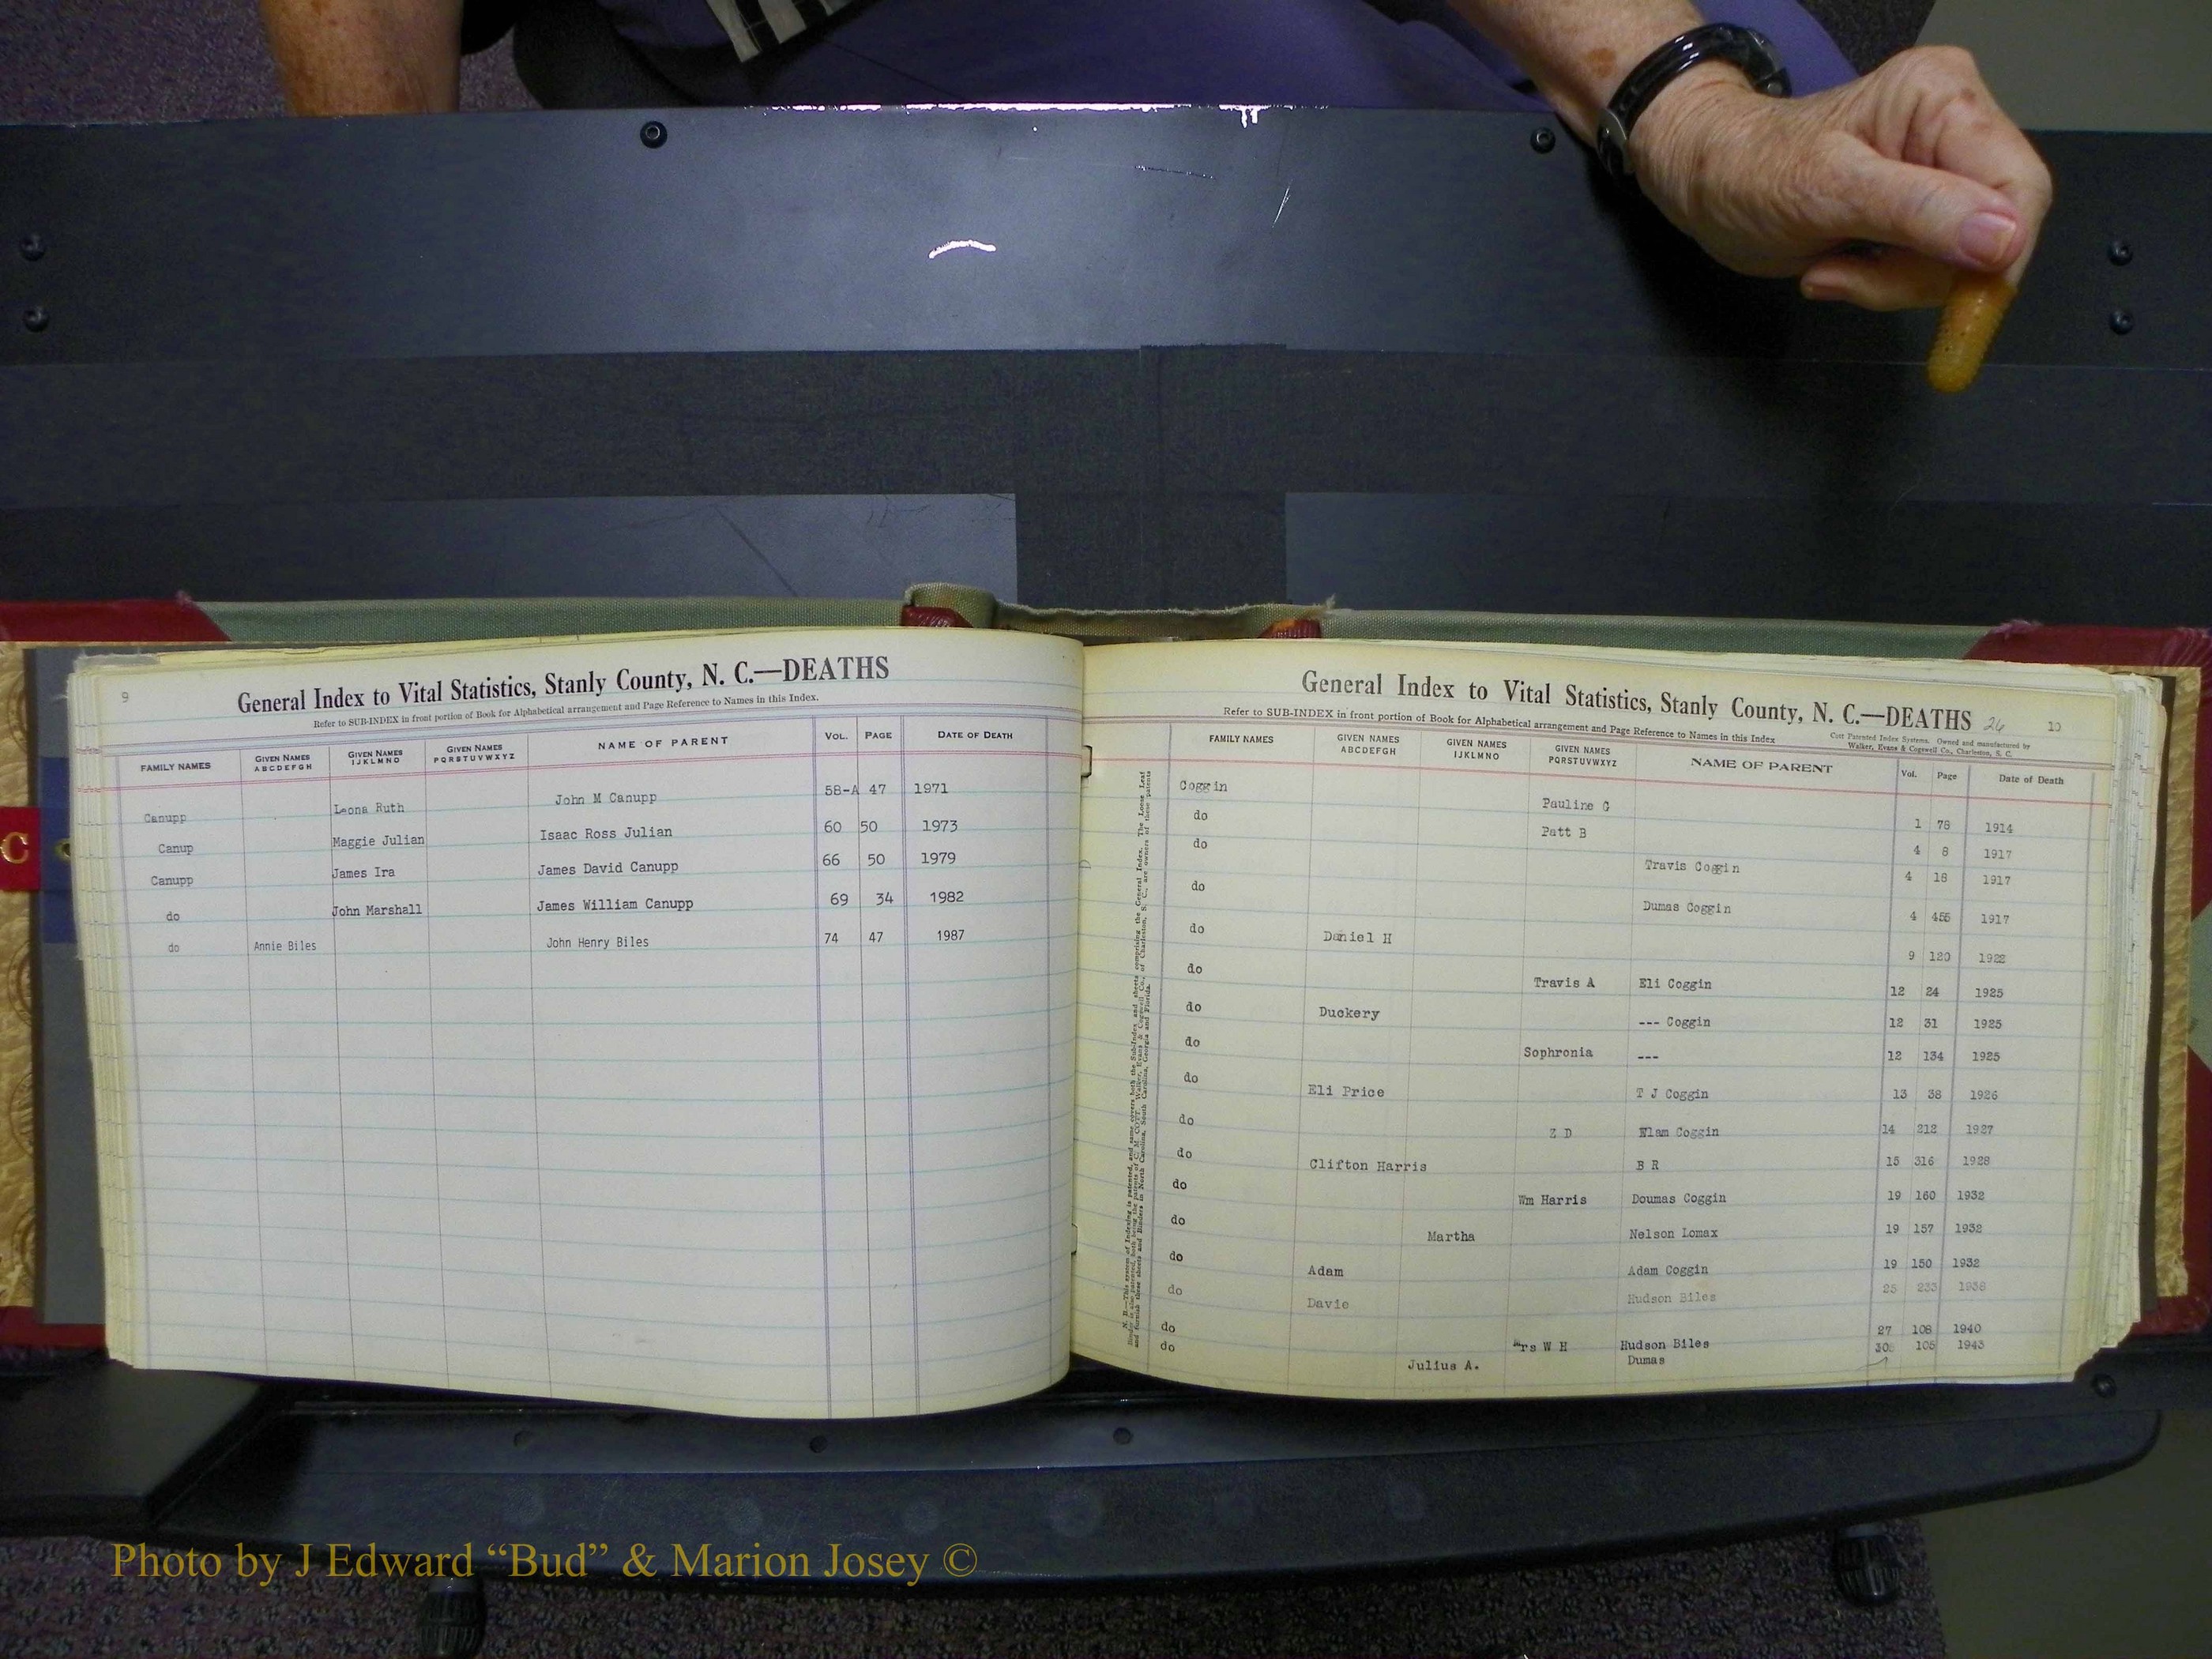 9
General Index to Vital Statistics, Stanly County, N. C.—DEATHS
Refer to SUB-INDEX in front portion of Book for Alphabetical arrangement and Page Reference to Names in this Index.
FAMILY NAMES GIVEN NAMES ABCDEFGH GIVEN NAMES IJKLMNO GIVEN NAMES PQRSTUVWXYZ NAME OF PARENT VOL. PAGE DATE OF DEATH
Canupp Leona Ruth John M Canupp 58-A 47 1971
Canup Maggie Julian Isaac Ross Julian 60 50 1973
Canupp James Ira James David Canupp 66 50 1979
do John Marshall James William Canupp 69 34 1982
do Annie Biles John Henry Biles 74 47 1987
C
General Index to Vital Statistics, Stanly County, N. C.—DEATHS 26 10
Refer to SUB-INDEX in front portion of Book for Alphabetical arrangement and Page Reference to Names in this Index
Cott Patented Index Systems. Owned and manufactured by
Walker, Evans & Cogswell Co., Charleston, S. C.
FAMILY NAMES GIVEN NAMES ABCDEFGH GIVEN NAMES IJKLMNO GIVEN NAMES PQRSTUVWXYZ NAME OF PARENT Vol. Page Date of Death
Coggin Pauline G 1 78 1914
do Patt B 4 8 1917
do Travis Coggin 4 18 1917
do Dumas Coggin 4 455 1917
do Daniel H 9 120 1922
do Travis A Eli Coggin 12 24 1925
do Duckery --- Coggin 12 31 1925
do Sophronia --- 12 134 1925
do Eli Price T J Coggin 13 38 1926
do Z D Elam Coggin 14 212 1927
do Clifton Harris B R 15 316 1928
do Wm Harris Doumas Coggin 19 160 1932
do Martha Nelson Lomax 19 157 1932
do Adam Adam Coggin 19 150 1932
do Davie Hudson Biles 25 233 1938
do Mrs W H Hudson Biles 27 108 1940
do Julius A. Dumas 30 105 1943
Photo by J Edward “Bud” & Marion Josey ©